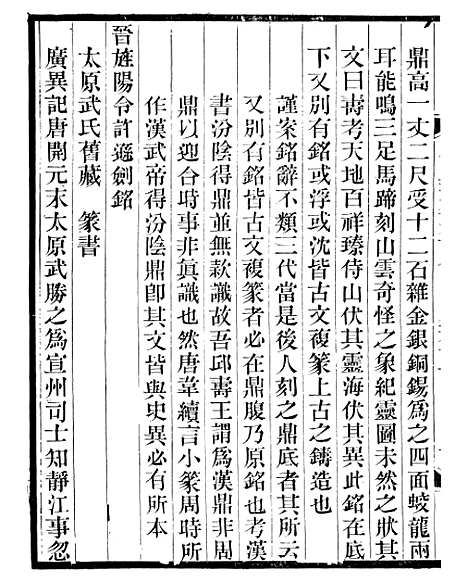 鼎高一丈二尺受十二石雜金銀銅錫爲之四面蛟龍兩
耳能鳴三足馬蹄刻山雲奇怪之象紀靈圖未然之狀其
文曰壽考天地百祥臻侍山伏其靈海伏其異此銘在底
下又別有銘或浮或沈皆古文複篆上古之鑄造也
謹案銘辭不類三代當是後人刻之鼎底者其所云
又別有銘皆古文複篆者必在鼎腹乃原銘也考漢
書汾陰得鼎並無款識故吾邱壽王謂爲漢鼎非周
鼎以迎合時事非眞識也然唐韋續言小篆周時所
作漢武帝得汾陰鼎卽其文皆與史異必有所本
晉旌陽令許遜劍銘
太原武氏舊藏　篆書
廣異記唐開元末太原武勝之爲宣州司士知靜江事忽